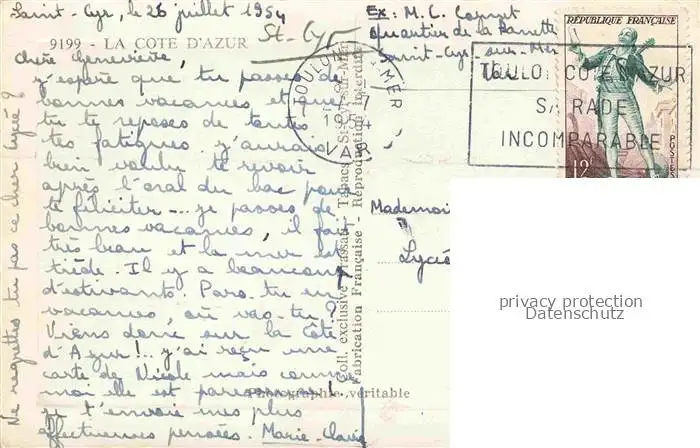 Saint-Cyr, le 26 juillet 1954
9199 - LA COTE D'AZUR
St-Cyr
Chère Geneviève,
j'espère que tu passes de
bonnes vacances et que
tu te reposes de toutes
tes fatigues. J'aurais
bien voulu te revoir
après l'oral du bac pour
te féliciter... je passes de
bonnes vacances, il fait
très beau et la mer est
tiède. Il y a beaucoup
d'estivants. Pars-tu en
vacances, où vas-tu ?
Viens donc sur la Côte
d'Azur !... j'ai reçu une
carte de Nicole mais comme
moi elle est paresseuse !
je t'envoie mes plus
affectueuses pensées. Marie-Claire
Ne regrettes tu pas ce cher Lycée ?
Ex : M. C.
quartier de la
Saint-Cyr-sur-Mer
Var
RÉPUBLIQUE FRANÇAISE
12F
POSTES
TOULON
MER
1954
VAR
TOULON COTE D'AZUR
SA RADE
INCOMPARABLE
Coll. exclusive Tabacs St-Cyr-sur-Mer
Fabrication Française - Reproduction interdite
Photographie véritable
Mademoi
Lycé
privacy protection
Datenschutz